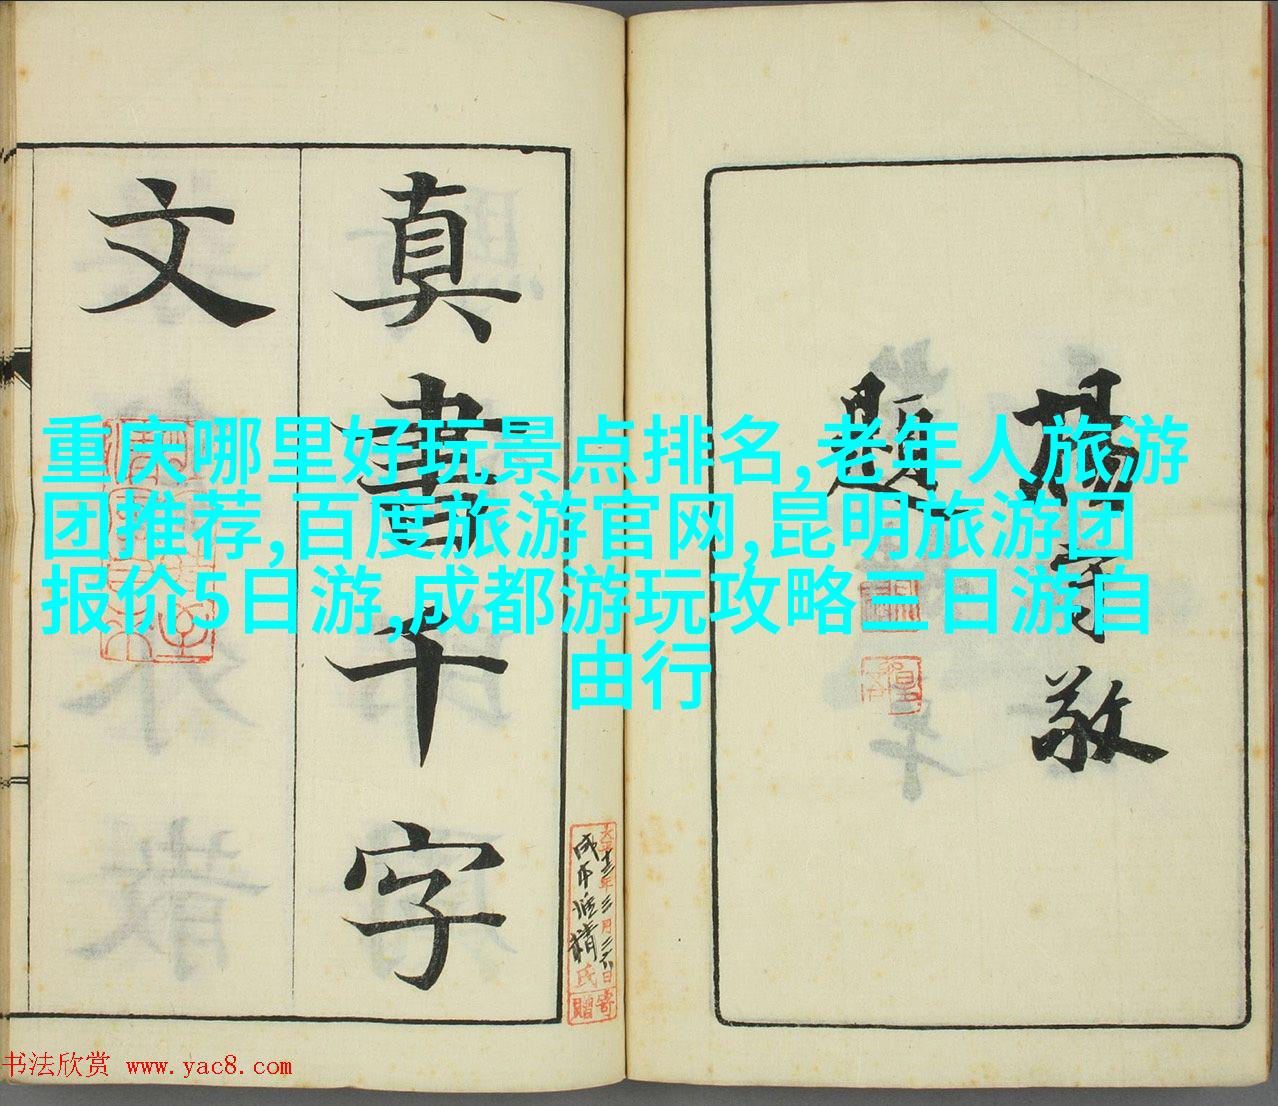 重庆哪里好玩景点排名,老年人旅游
团推荐,百度旅游官网,昆明旅游团
报价5日游,成都游玩攻略三日游自
由行
真書千字
文
敬
題
大正十三年三月二六日寄
氏
贈
书法欣赏 www.yac8.com